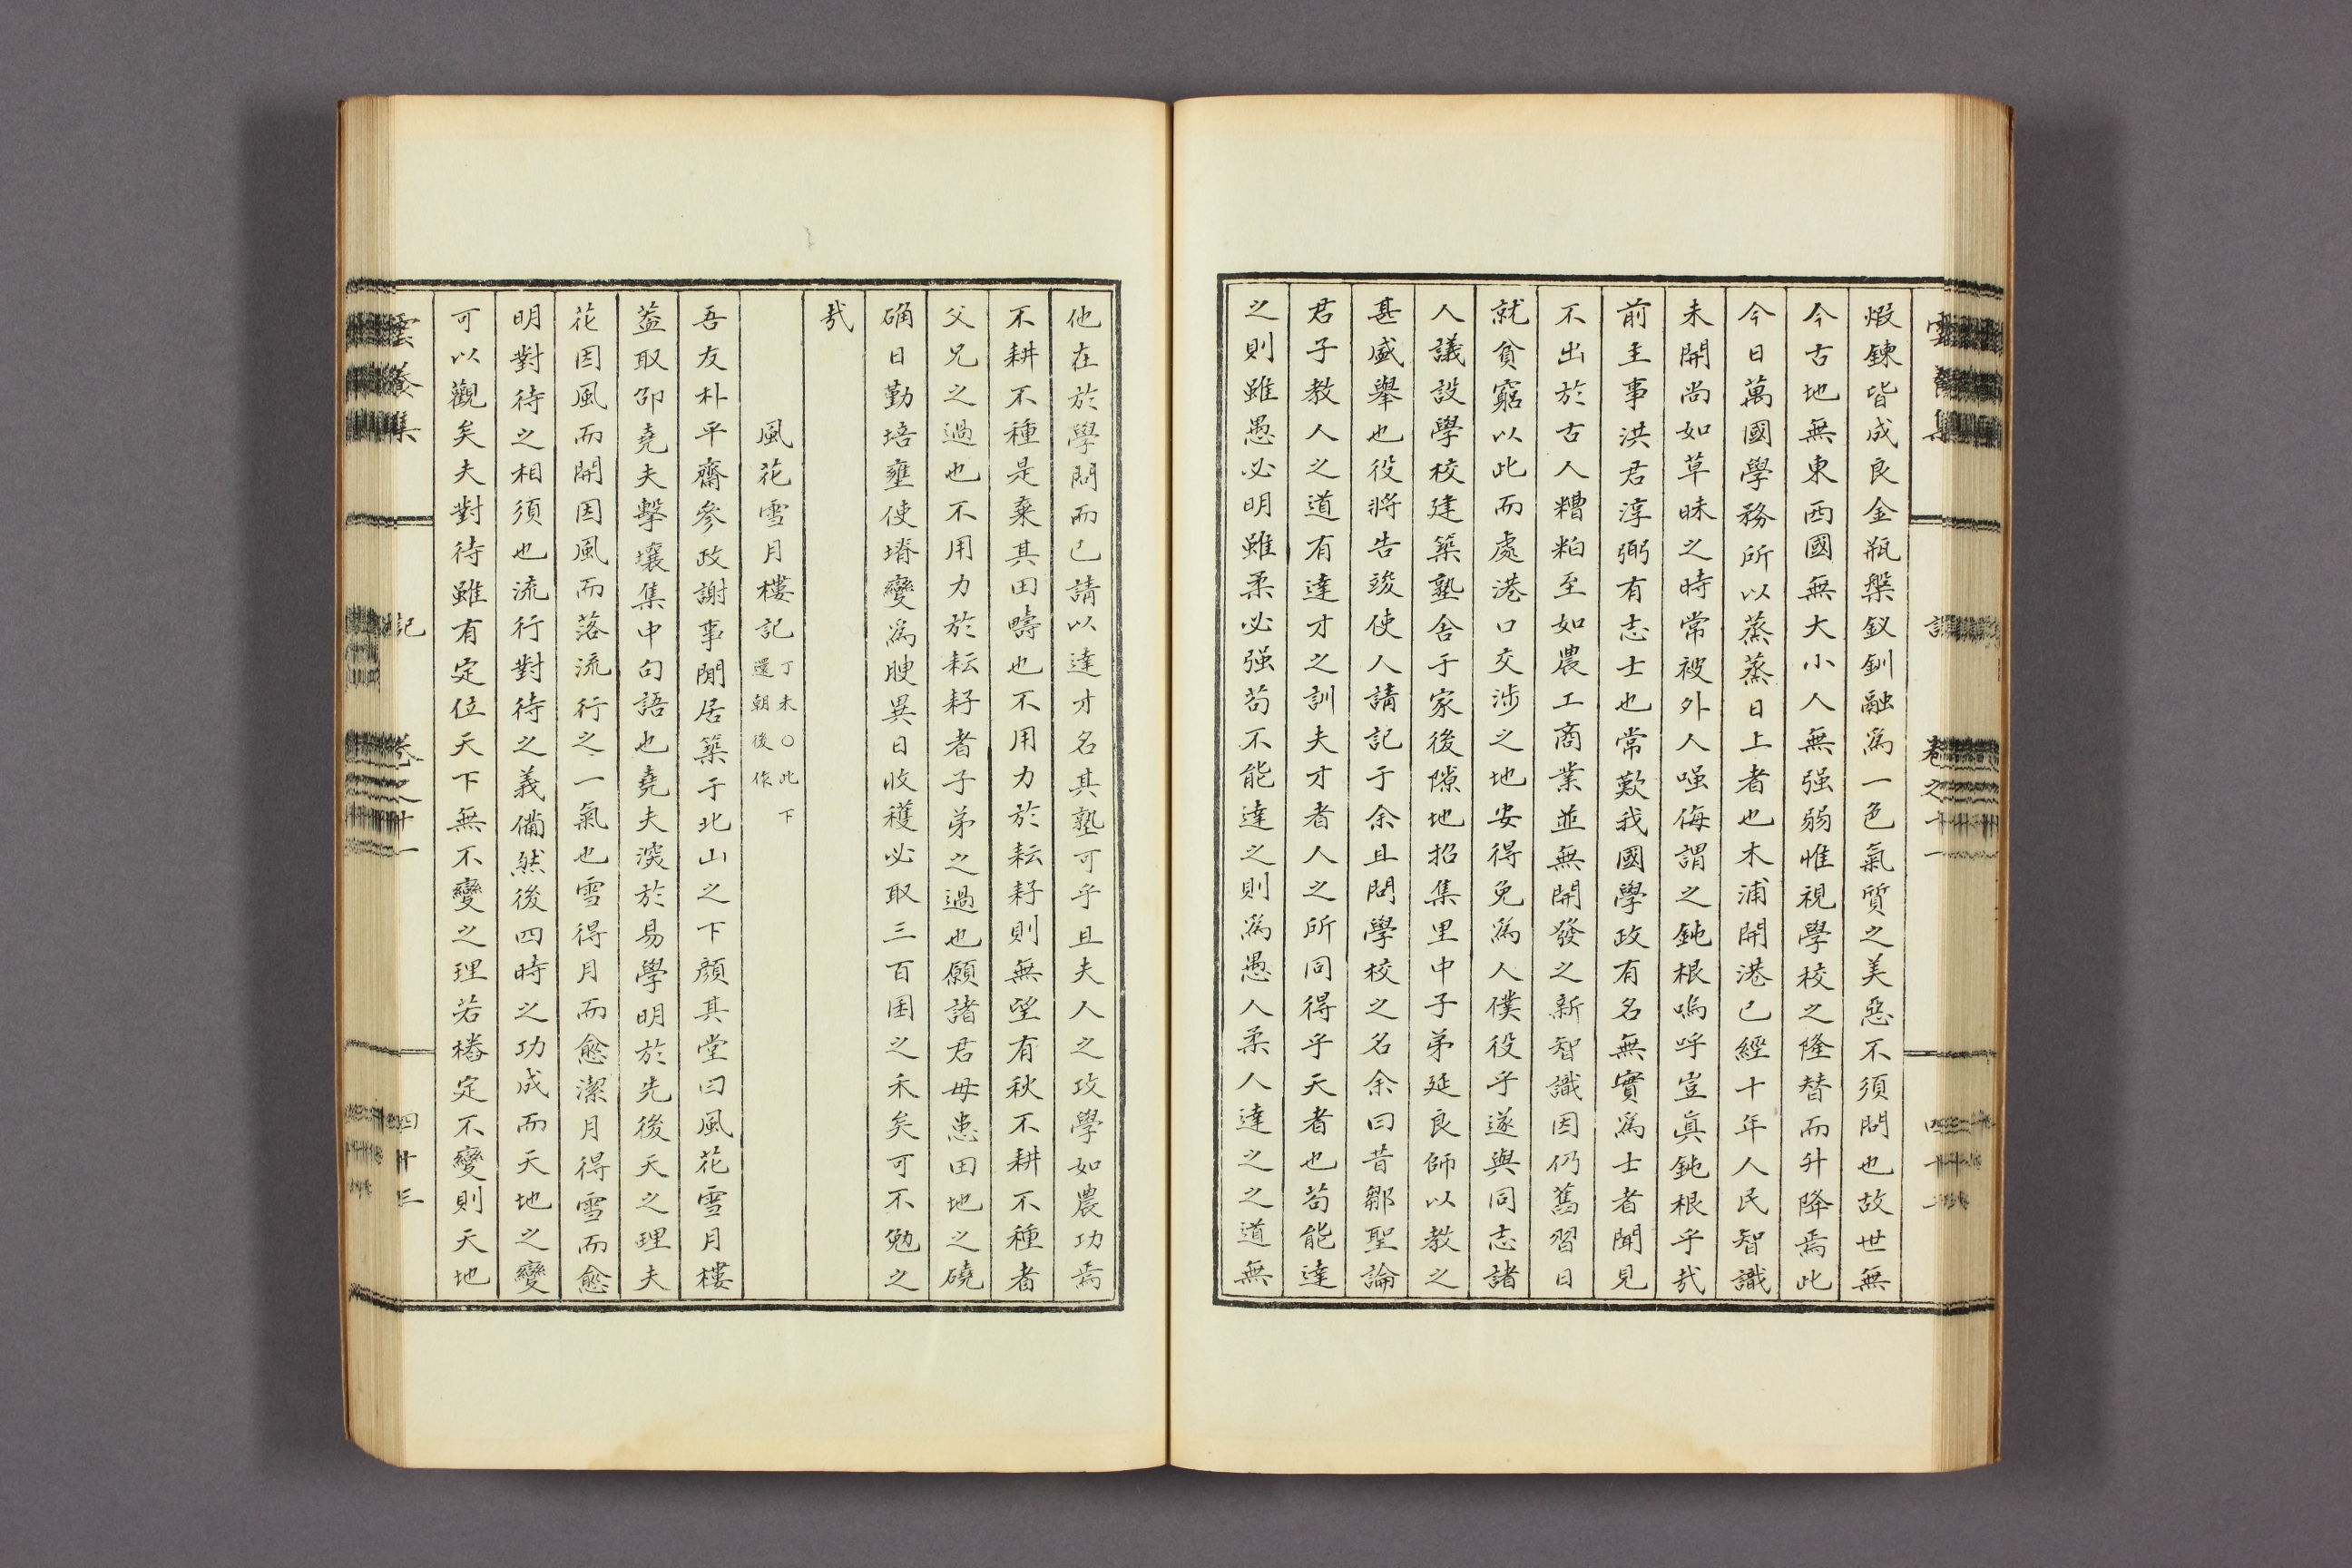 雲養集 記 卷之十一 四十二
煆鍊皆成良金瓶槃釵釧融爲一色氣質之美惡不須問也故世無
今古地無東西國無大小人無强弱惟視學校之隆替而升降焉此
今日萬國學務所以蒸蒸日上者也木浦開港已經十年人民智識
未開尚如草昧之時常被外人嗤侮謂之鈍根嗚呼豈眞鈍根乎㢤
前主事洪君淳弼有志士也常歎我國學政有名無實爲士者聞見
不出於古人糟粕至如農工商業並無開發之新智識因仍舊習日
就貧窮以此而處港口交涉之地安得免爲人僕役乎遂與同志諸
人議設學校建築塾舍于家後隙地招集里中子弟延良師以教之
甚盛擧也役將告竣使人請記于余且問學校之名余曰昔鄒聖論
君子教人之道有達才之訓夫才者人之所同得乎天者也苟能達
之則雖愚必明雖柔必强苟不能達之則爲愚人柔人達之之道無
他在於學問而已請以達才名其塾可乎且夫人之攻學如農功焉
不耕不種是棄其田疇也不用力於耘耔則無望有秋不耕不種者
父兄之過也不用力於耘耔者子弟之過也願諸君毋患田地之磽
确日勤培壅使塉變爲腴異日收穫必取三百囷之禾矣可不勉之
㢤
風花雪月樓記 丁未○此下
還朝後作
吾友朴平齋參政謝事閒居築于北山之下顔其堂曰風花雪月樓
蓋取邵堯夫擊壤集中句語也堯夫深於易學明於先後天之理夫
花因風而開因風而落流行之一氣也雪得月而愈潔月得雪而愈
明對待之相須也流行對待之義備然後四時之功成而天地之變
可以觀矣夫對待雖有定位天下無不變之理若樁定不變則天地
雲養集 記 卷之十一 四十三